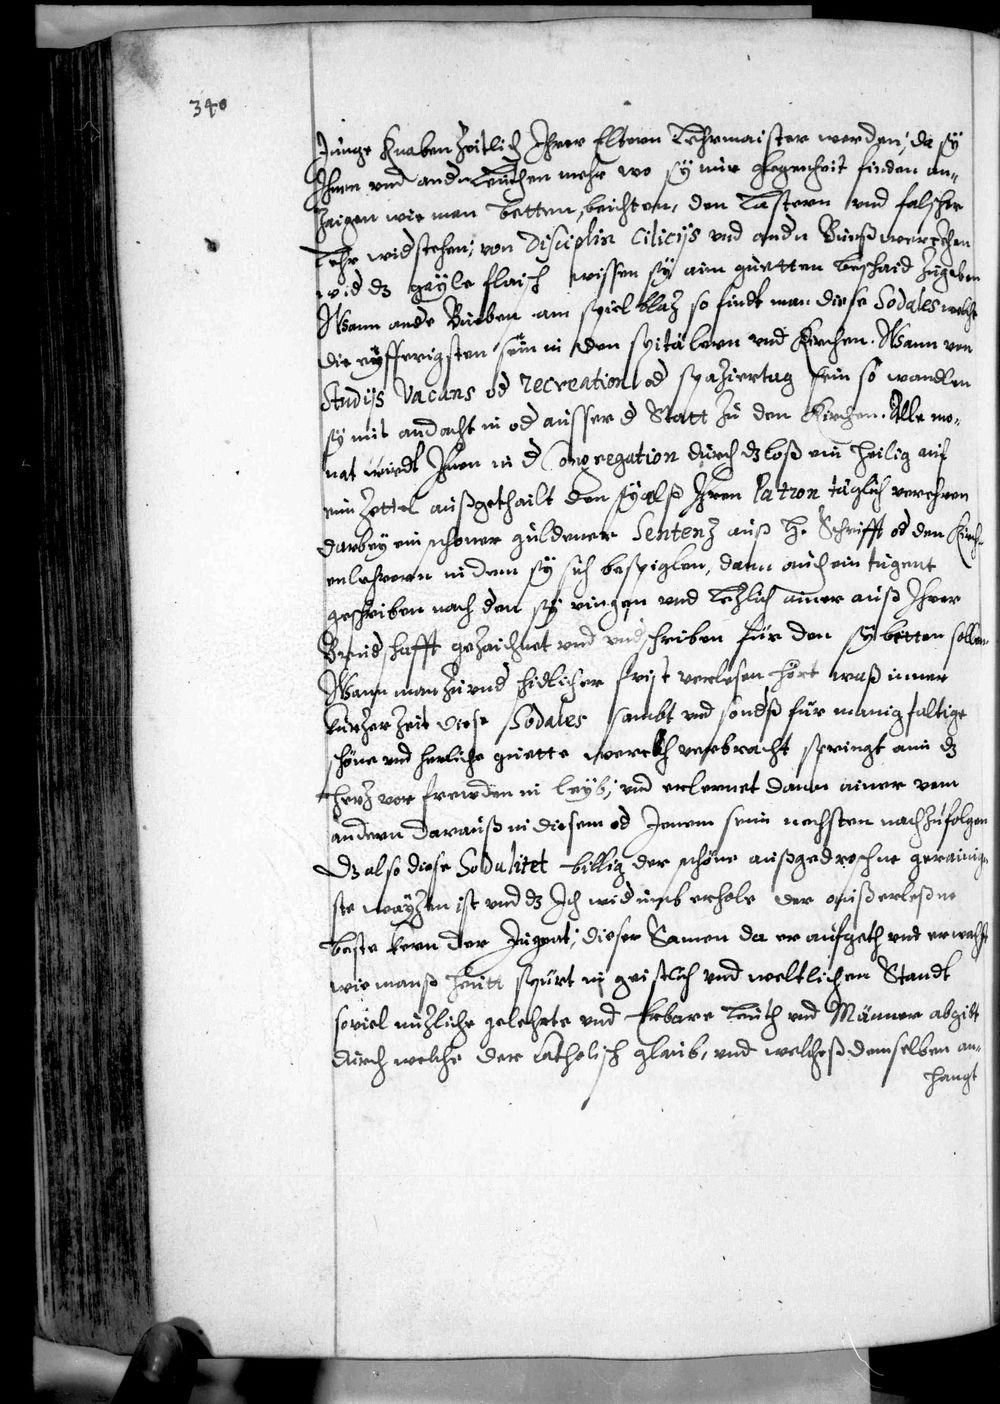 340
Junge Knaben Zeitlich Ihrer Eltern Lehrmaister werden, da sÿ
Ihnen und andn Leüthen mehr wo sÿ nur glegenheit finden an-
zaigen wie man betten, beichten, den Lastern und falscher
Lehr widstehen; von Disciplin Cilicijs und andn Buosswerckhen
wid dz gayle flaisch wissen sÿ aim guetten beschaid zugeben
Wann andre Bueben am spielblaz so findt man diese Sodales welche
die eÿfferigsten sein in den spitälern und Kirchen. Wann von
Studijs Vacans od recreation od spaziertag sein so wandlen
sÿ mit andacht in od ausser d Statt zu den Kirchen. Alle mo-
nat würdt Ihnen in d Congregation durch dz loß ein heilig auf
eim Zettel außgethailt den sÿ alß Ihren Patron täglich verehren
darbeÿ ein schoner guldener Sentenz auß H. Schrifft od den Kirch-
enlehrern in dem sÿ sich bespiglen, dann auch ein tugent
geschriben nach den sÿ ringen und letzlich ainer auß Ihrer
Bruedschafft gezaichnet und undschriben für den sÿ betten sollen.
Wann man zu undschidlicher frist verlesen hört waß inner
kurzer Zeit diese Sodales sambt und sondß für manigfaltige
schöne und herliche guette werckh verbracht springt aim dz
herz vor frewden in leÿb, und erlernet dann ainer vom
andern darauß in diesem od Jenem seim nechsten nachzufolgen
Dz also diese Sodalitet billig der schöne außgedroschne gerainig-
ste wayzen ist und dz Ich widumb erhole der außerleßne
beste kern der Jugent; dieser Samen da er aufgeth und erwachst
wie manß heütt spürt in geistlich und weltlichen Standt
soviel nuzliche gelehrte und Erbare Leüth und Männer abgibt
durch welche der Catholisch glaub, und welcheß demselben an-
hangt